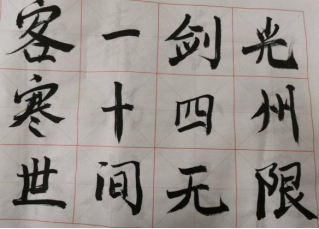 客一剑光
寒十四州
世间无限